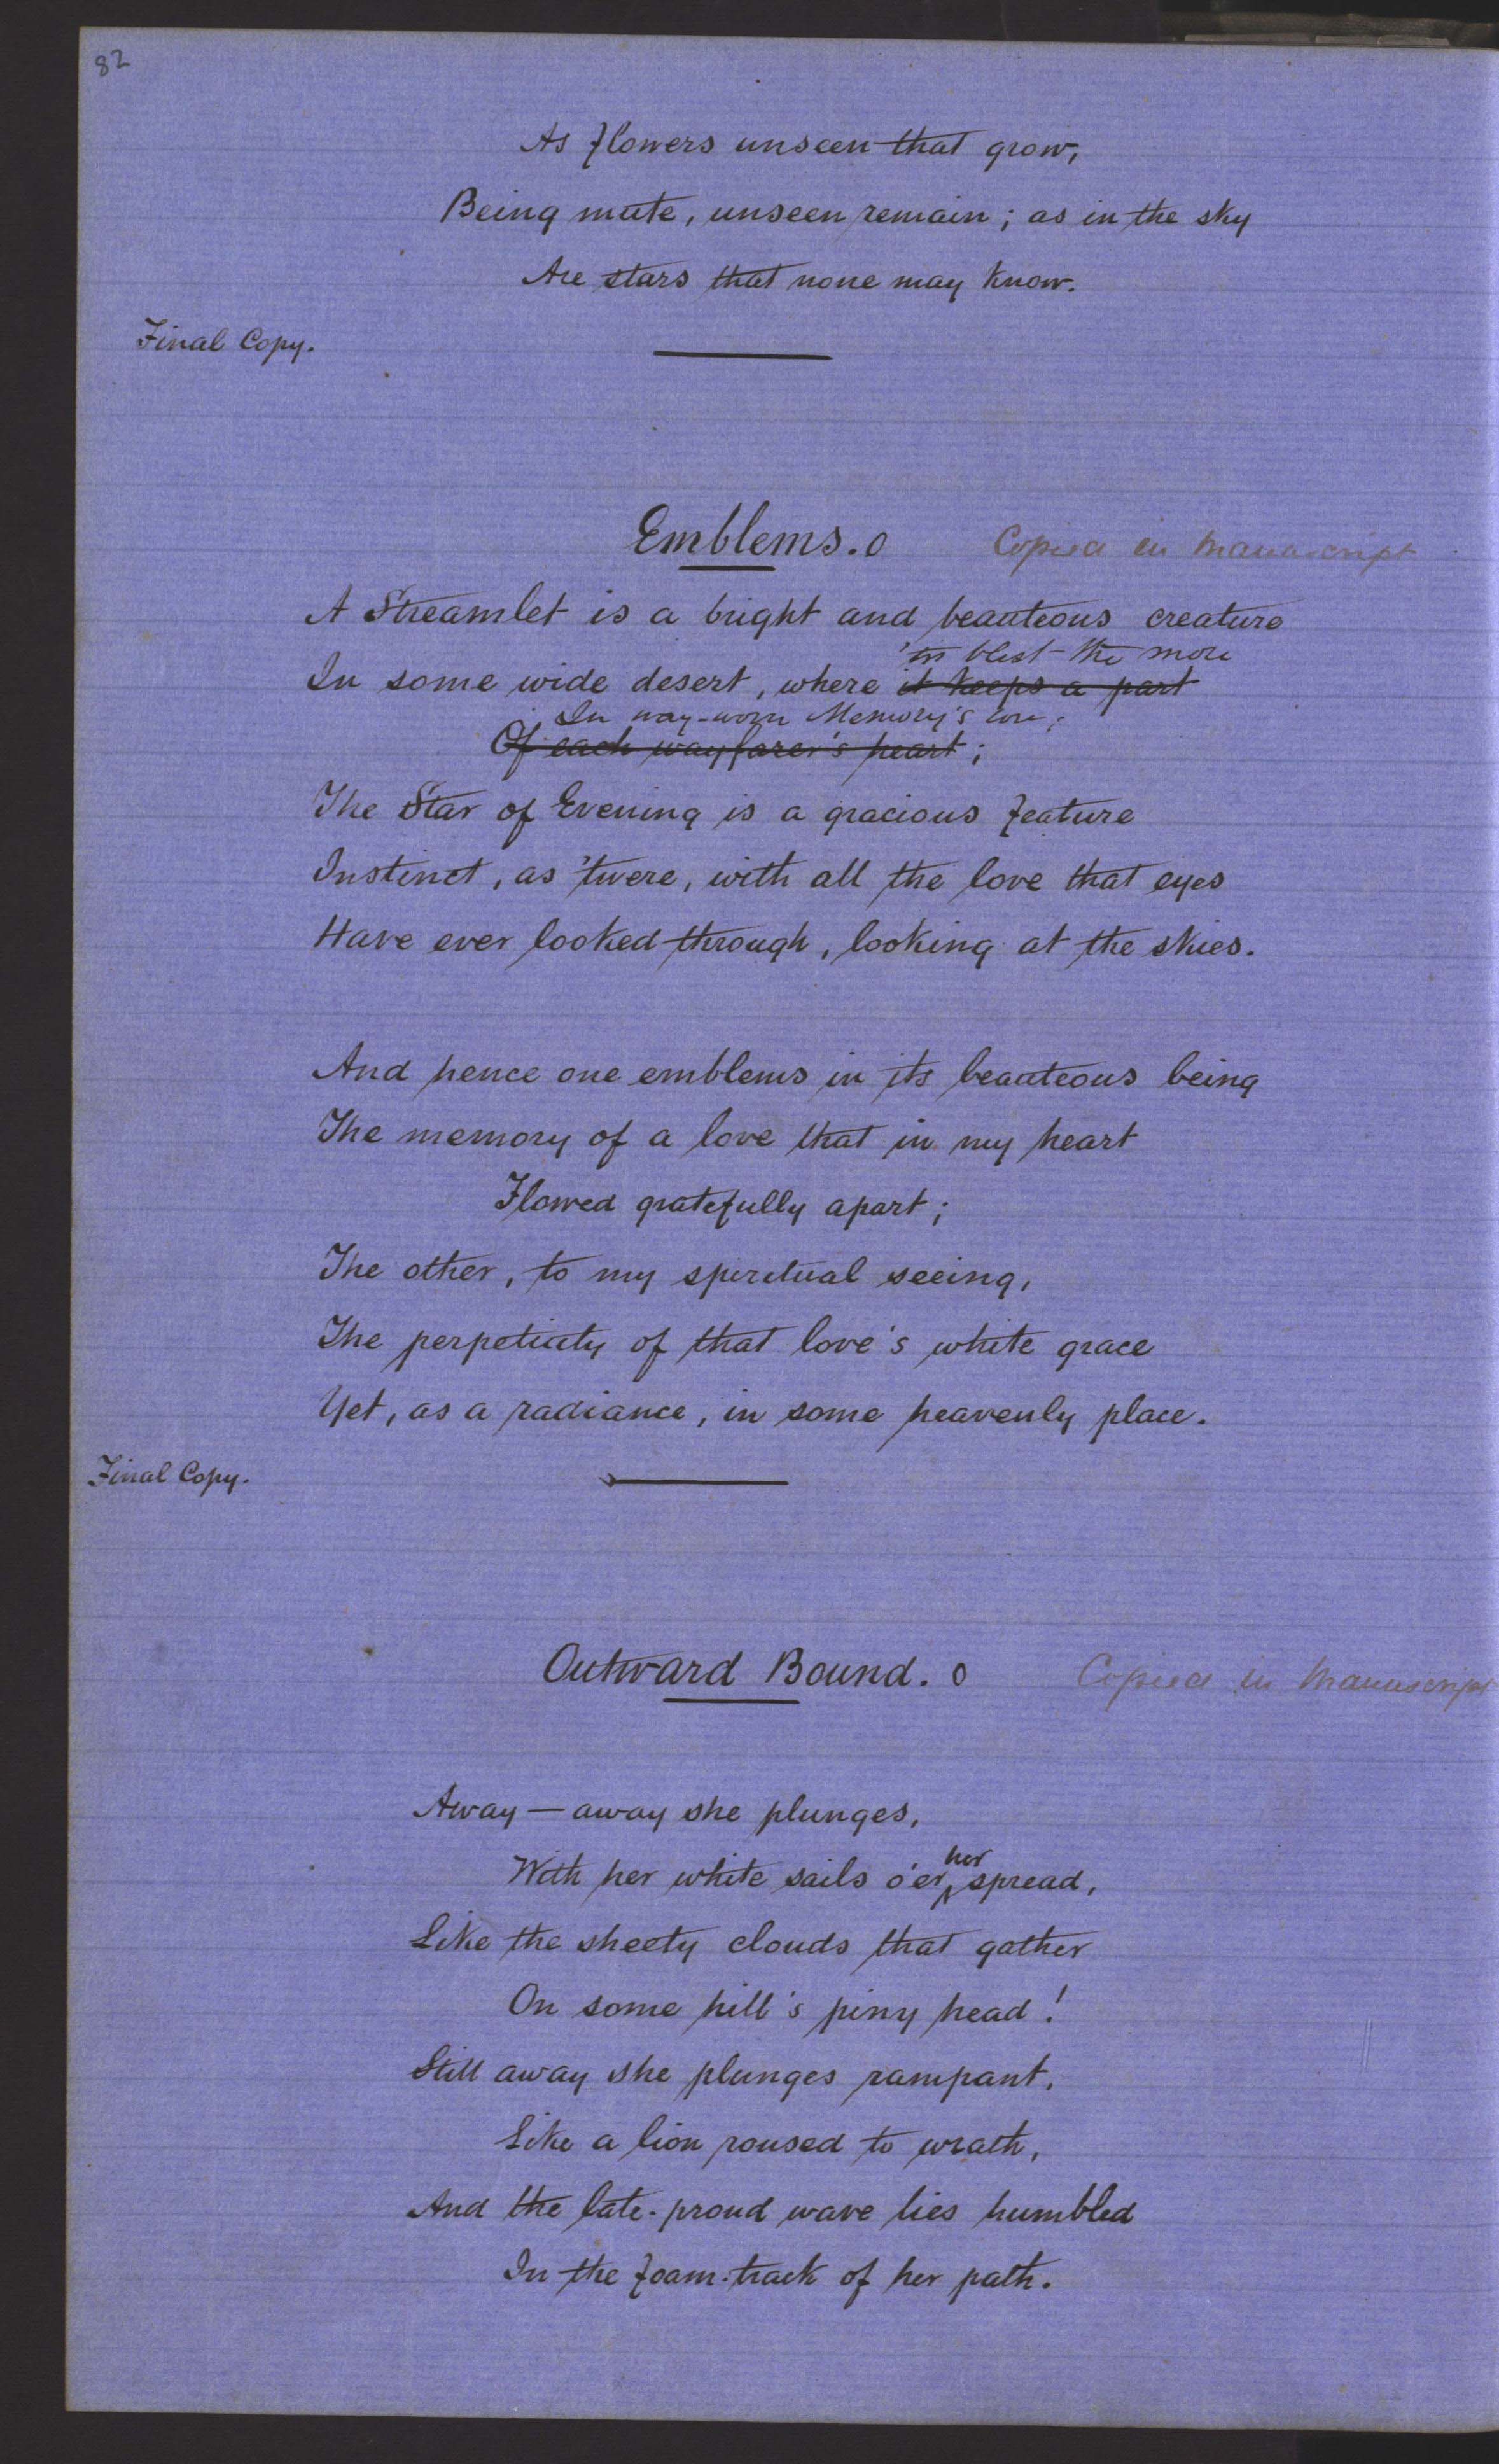 82
As flowers unseen that grow,
Being mute, unseen remain; as in the sky
Are stars that none may know.
Final Copy.
Emblems. o Copied in Manuscript
A Streamlet is a bright and beauteous creature
'tis blest the more
In some wide desert, where it keeps a part
In way-worn Memory's lore;
Of each wayfarer's heart;
The Star of Evening is a gracious feature
Instinct, as 'twere, with all the love that eyes
Have ever looked through, looking at the skies.
And hence one emblems in its beauteous being
The memory of a love that in my heart
Flowed gratefully apart;
The other, to my spiritual seeing,
The perpetuity of that love's white grace
Yet, as a radiance, in some heavenly place.
Final Copy.
Outward Bound. o Copied in Manuscript
Away — away she plunges,
With her white sails o'er her spread,
Like the sheety clouds that gather
On some hill's piny head!
Still away she plunges rampant,
Like a lion roused to wrath,
And the late-proud wave lies humbled
In the foam-track of her path.